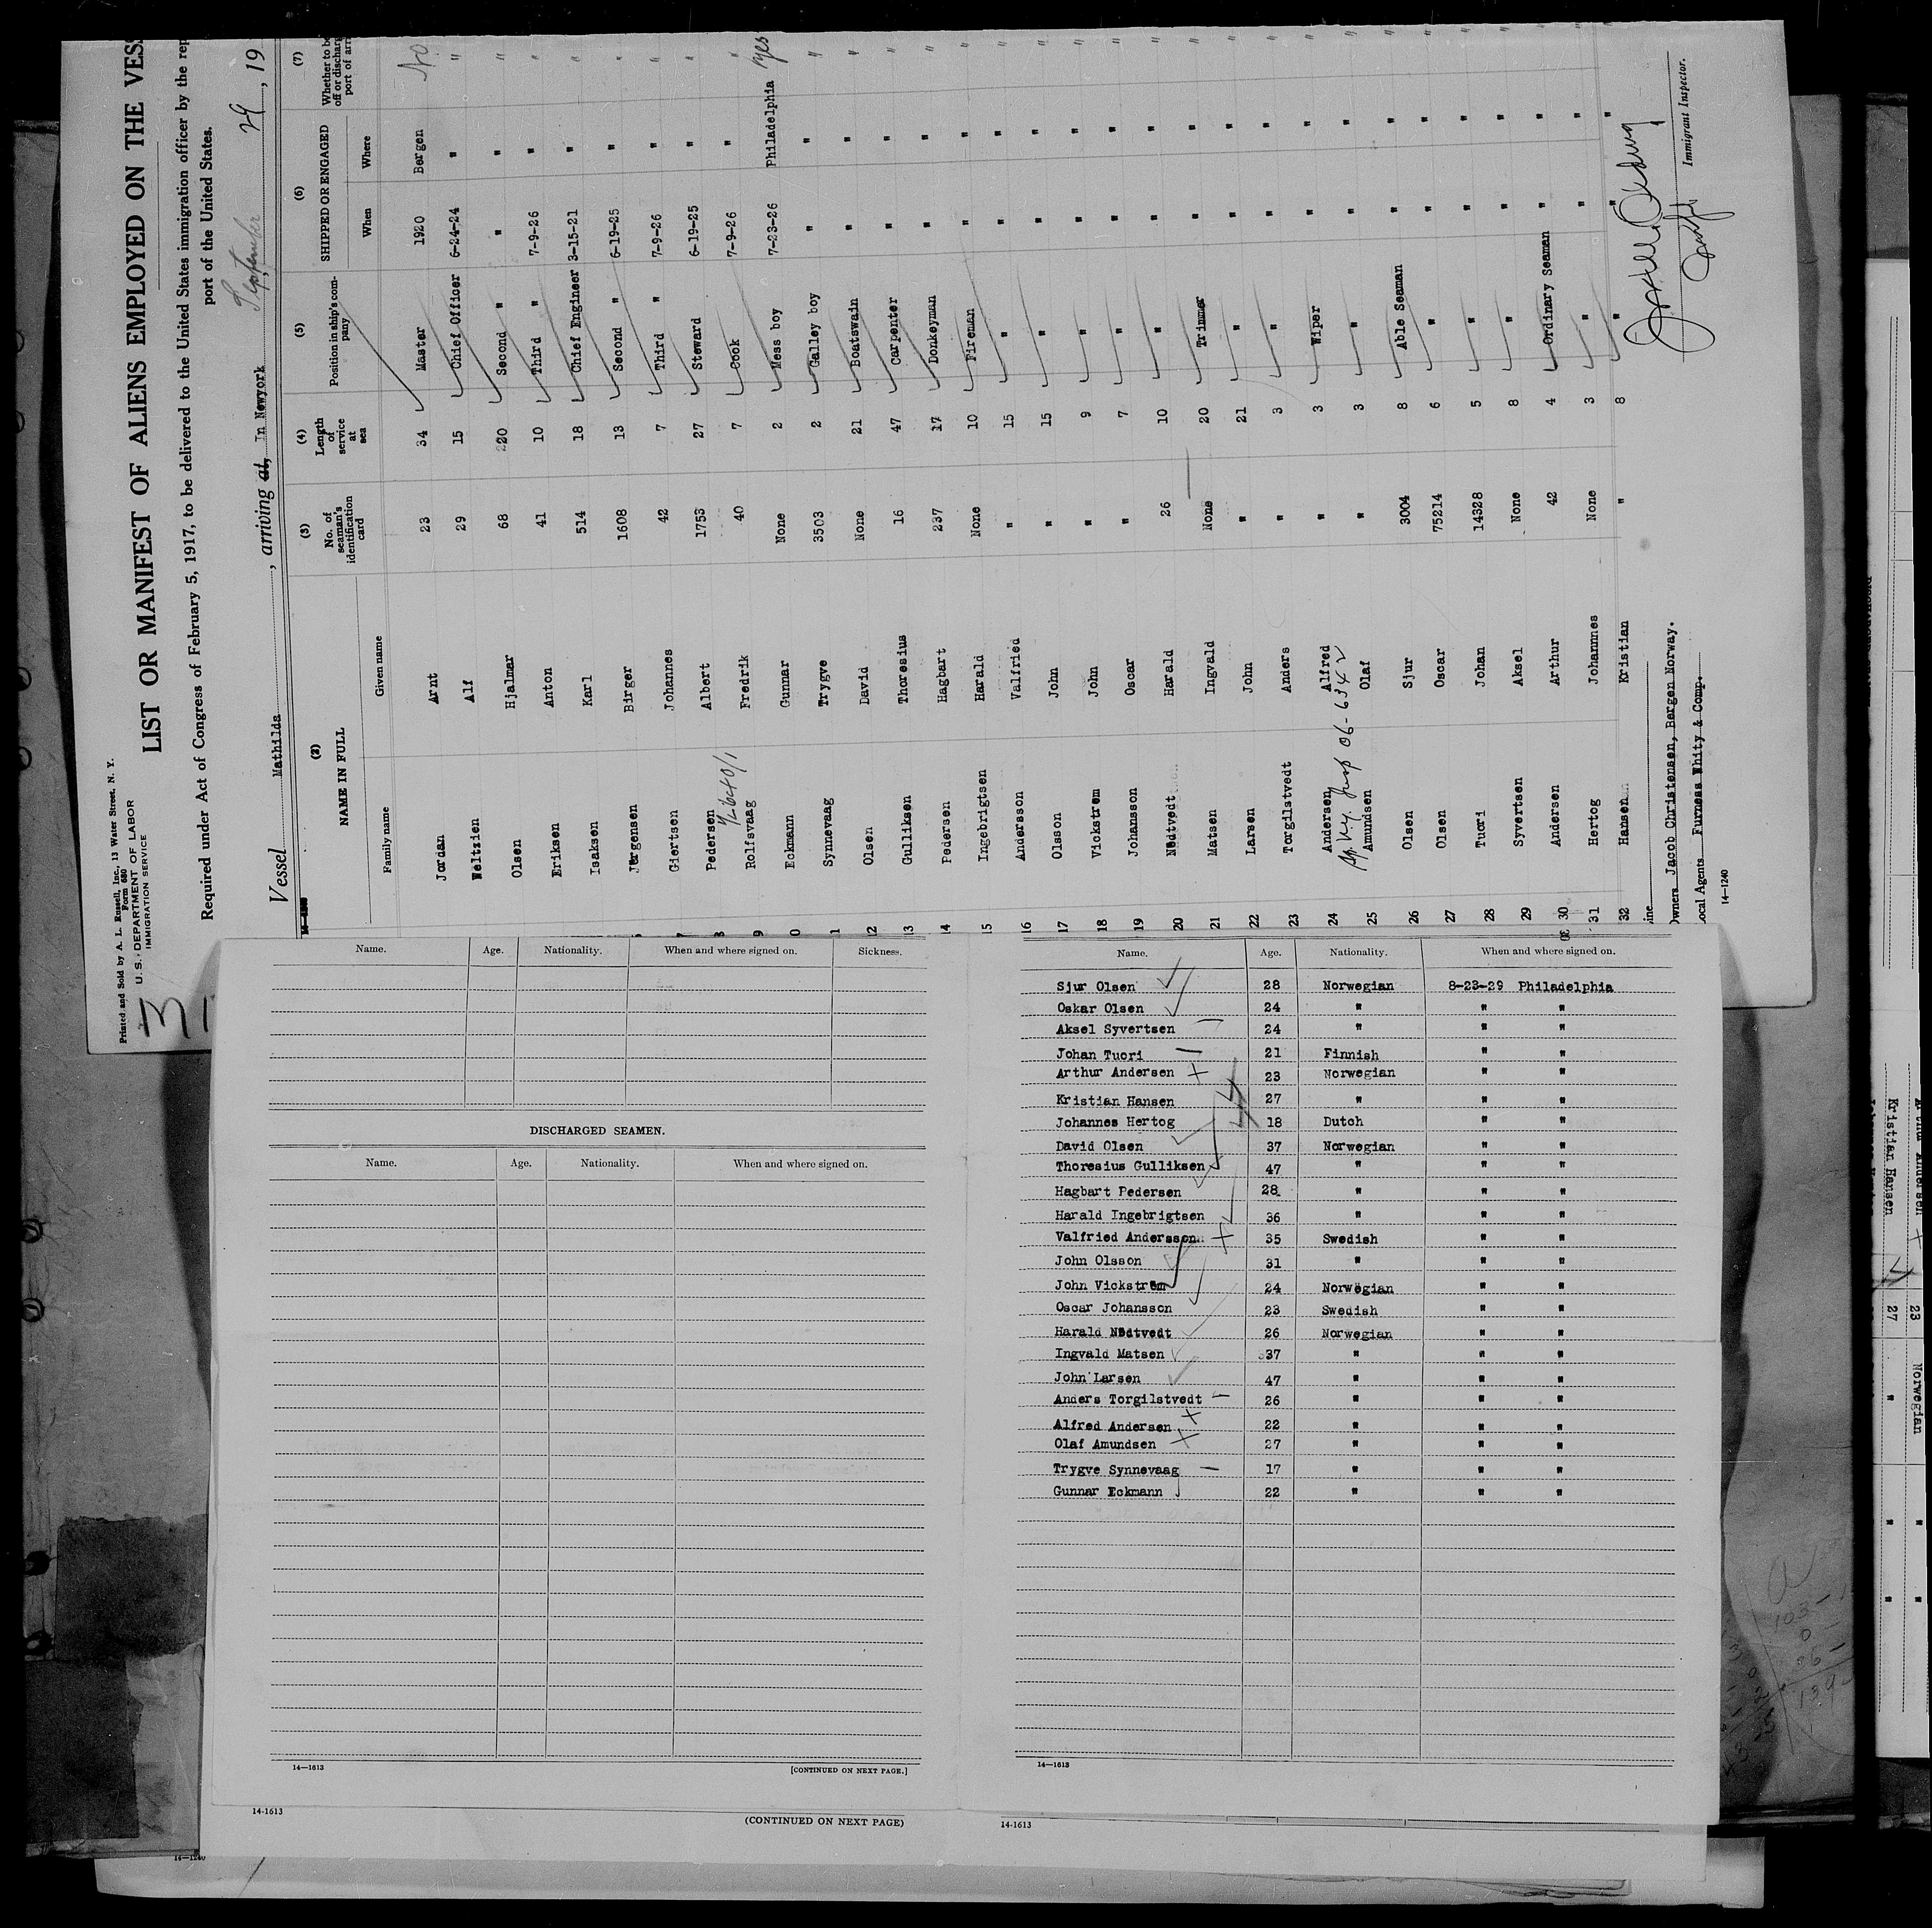 Printed and Sold by A. L. Russell, Inc., 13 Water Street, N. Y.
Form 680
U. S. DEPARTMENT OF LABOR
IMMIGRATION SERVICE
LIST OR MANIFEST OF ALIENS EMPLOYED ON THE VESS
Required under Act of Congress of February 5, 1917, to be delivered to the United States immigration officer by the rep
port of the United States.
Vessel Mathilda, arriving at, In Newyork September 29, 19
(2) (3) (4) (5) (6) (7)
NAME IN FULL No. of seaman's identification card Length of service at sea Position in ship's company SHIPPED OR ENGAGED Whether to be off or discharg port of arr
Family name Given name When Where
Jordan Arnt 23 34 Master 1920 Bergen No
Weltzien Alf 29 15 Chief Officer 6-24-24 " "
Olsen Hjalmar 68 220 Second " " " "
Eriksen Anton 41 10 Third " 7-9-26 " "
Isaksen Karl 514 18 Chief Engineer 3-15-21 " "
Jørgensen Birger 1608 13 Second " 6-19-25 " "
Giertsen Johannes 42 7 Third " 7-9-26 " "
Pedersen Albert 1753 27 Steward 6-19-25 " "
Rolfsvaag Fredrik 40 7 Cook 7-9-26 " "
0 Eckmann Gunnar None 2 Mess boy 7-23-26 Philadelphia yes
1 Synnevaag Trygve 3503 2 Galley boy " " "
12 Olsen David None 21 Boatswain " " "
13 Gulliksen Thoresius 16 47 Carpenter " " "
14 Pedersen Hagbart 237 17 Donkeyman " " "
15 Ingebrigtsen Harald None 10 Fireman " " "
16 Andersson Valfried " 15 " " " "
17 Olsson John " 15 " " " "
18 Vickstrøm John " 9 " " " "
19 Johansson Oscar " 7 " " " "
20 Nødtvedt Harald 26 10 " " " "
21 Matsen Ingvald None 20 Trimmer " " "
22 Larsen John " 21 " " " "
23 Torgilstvedt Anders " 3 " " " "
24 Andersen Alfred " 3 Wiper " " "
25 Amundsen Olaf " 3 " " " "
26 Olsen Sjur 3004 8 Able Seaman " " "
27 Olsen Oscar 75214 6 " " " "
28 Tuori Johan 14328 5 " " " "
29 Syvertsen Aksel None 8 " " " "
30 Andersen Arthur 42 4 Ordinary Seaman " " "
31 Hertog Johannnes None 3 " " " "
32 Hansen Kristian " 8 " " "
ine
Owners Jacob Christensen, Bergen Norway.
ocal Agents Furness Whity & Comp.
Immigrant Inspector.
14—1240
Name. Age. Nationality. When and where signed on. Sickness.
DISCHARGED SEAMEN.
Name. Age. Nationality. When and where signed on.
14—1613 [CONTINUED ON NEXT PAGE.]
14-1613 (CONTINUED ON NEXT PAGE)
Name. Age. Nationality. When and where signed on.
Sjur Olsen 28 Norwegian 8-23-29 Philadelphia
Oskar Olsen 24 " " "
Aksel Syvertsen 24 " " "
Johan Tuori 21 Finnish " "
Arthur Andersen 23 Norwegian " "
Kristian Hansen 27 " " "
Johannes Hertog 18 Dutch " "
David Olsen 37 Norwegian " "
Thoresius Gulliksen 47 " " "
Hagbart Pedersen 28 " " "
Harald Ingebrigtsen 36 " " "
Valfried Andersson 35 Swedish " "
John Olsson 31 " " "
John Vickstrøm 24 Norwegian " "
Oscar Johansson 23 Swedish " "
Harald Nødtvedt 26 Norwegian " "
Ingvald Matsen 37 " " "
John Larsen 47 " " "
Anders Torgilstvedt 26 " " "
Alfred Andersen 22 " " "
Olaf Amundsen 27 " " "
Trygve Synnevaag 17 " " "
Gunnar Eckmann 22 " " "
14—1613
14-1613
14—1240
Kristian Hansen 27 " " "
23 Norwegian " "